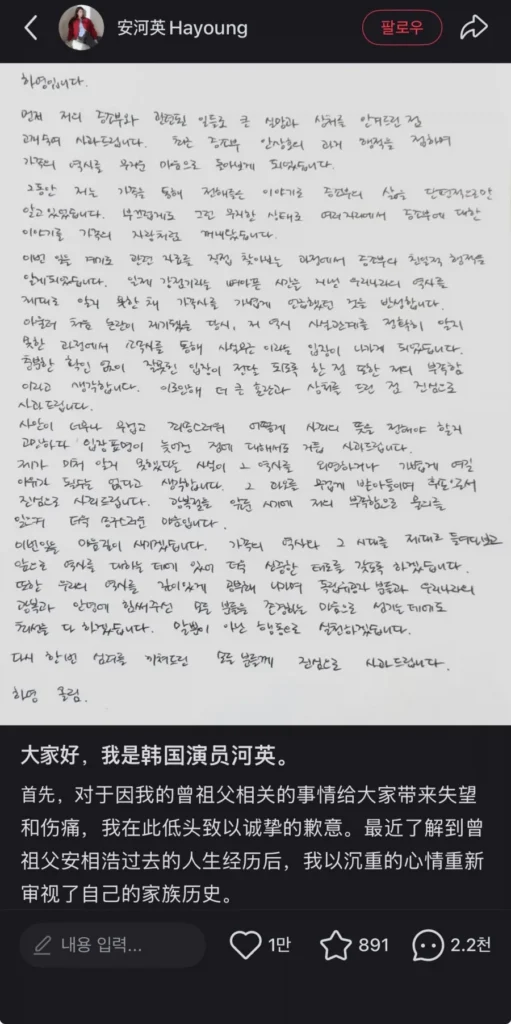 安河英Hayoung
팔로우
하영입니다.
먼저 저의 증조부와 관련된 일들로 큰 실망과 상처를 안겨드린 점
고개 숙여 사과드립니다. 최근 증조부 안상호의 과거 행적을 접하며
가족의 역사를 무거운 마음으로 돌아보게 되었습니다.
그동안 저는 가족을 통해 전해들은 이야기로 증조부의 삶을 단편적으로만
알고 있었습니다. 부끄럽게도 그런 무지한 상태로 여러 자리에서 증조부에 대한
이야기를 가족의 자랑처럼 꺼내왔습니다.
이번 일을 계기로 관련 자료를 직접 찾아보는 과정에서 증조부의 친일적 행적을
알게되었습니다. 일제 강점기라는 뼈아픈 시간을 지닌 우리나라의 역사를
제대로 알지 못한 채 가족사를 가볍게 언급했던 것을 반성합니다.
아울러 처음 논란이 제기됐을 당시, 저 역시 사실관계를 정확히 알지
못한 과정에서 소속사를 통해 사실무근이라는 입장이 나가게 되었습니다.
충분한 확인 없이 잘못된 입장이 전달 되도록 한 점 또한 저의 부족함
이라고 생각합니다. 이로인해 더 큰 혼란과 상처를 드린 점 진심으로
사과드립니다.
사안이 너무나 무겁고 죄송스러워 어떻게 사죄의 뜻을 전해야 할지
고민하다 입장표명이 늦어진 점에 대해서도 거듭 사과드립니다.
제가 미처 알지 못했다는 사실이 그 역사를 외면하거나 가볍게 여길
이유가 될수는 없다고 생각합니다. 그 과오를 무겁게 받아들이며 후손으로서
진심으로 사죄드립니다. 광복절을 앞둔 시기에 저의 부족함으로 물의를
일으켜 더욱 송구스러운 마음입니다.
이번일을 마음깊이 새기겠습니다. 가족의 역사와 그 시대를 제대로 들여다보고
앞으로 역사를 대하는 데에 있어 더욱 신중한 태도를 갖도록 하겠습니다.
또한 우리의 역사를 깊이있게 공부해 나가며 독립유공자 분들과 우리나라의
광복과 안녕에 힘써주신 모든 분들을 존경하는 마음으로 섬기는 데에도
최선을 다 하겠습니다. 말뿐이 아닌 행동으로 실천하겠습니다.
다시 한번 심려를 끼쳐드린 모든 분들께 진심으로 사과드립니다.
하영 올림.
大家好，我是韩国演员河英。
首先，对于因我的曾祖父相关的事情给大家带来失望
和伤痛，我在此低头致以诚挚的歉意。最近了解到曾
祖父安相浩过去的人生经历后，我以沉重的心情重新
审视了自己的家族历史。
내용 입력...
1만
891
2.2천